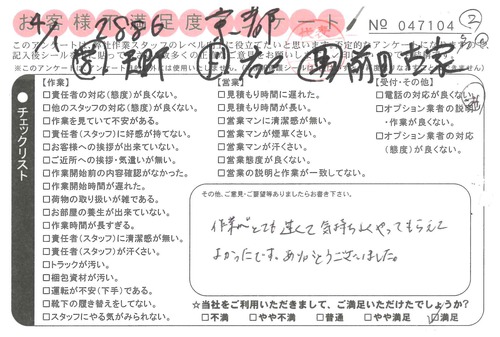 お客様満足度アンケート
No 047104 ②
4/1 2886 京都
このアンケートは、弊社作業スタッフのレベル
チェックリスト
【作業】
□責任者の対応(態度)が良くない。
□他のスタッフの対応(態度)が良くない。
□作業を見ていて不安がある。
□責任者(スタッフ)に好感が持てない。
□お客様への挨拶が出来ていない。
□ご近所への挨拶・気遣いが無い。
□作業開始前の内容確認がなかった。
□作業開始時間が遅れた。
□荷物の取り扱いが雑である。
□お部屋の養生が出来ていない。
□作業時間が長すぎる。
□責任者(スタッフ)に清潔感が無い。
□責任者(スタッフ)が汗くさい。
□トラックが汚い。
□梱包資材が汚い。
□運転が不安(下手)である。
□靴下の履き替えをしてない。
□スタッフにやる気がみられない。
【営業】
□見積もり時間に遅れた。
□見積もり時間が長い。
□営業マンに清潔感が無い。
□営業マンが煙草くさい。
□営業マンが汗くさい。
□営業態度が良くない。
□営業の説明と作業が一致してない。
【受付・その他】
□電話の対応が良くない。
□オプション業者の説明・作業が良くない。
□オプション業者の対応(態度)が良くない。
その他、ご意見・ご要望等ありましたらお書き下さい。
作業がとても速くて気持ちよくやってもらえて
よかったです。ありがとうございました。
☆当社をご利用いただきまして、ご満足いただけたでしょうか?
□不満 □やや不満 □普通 □やや満足 ☑満足